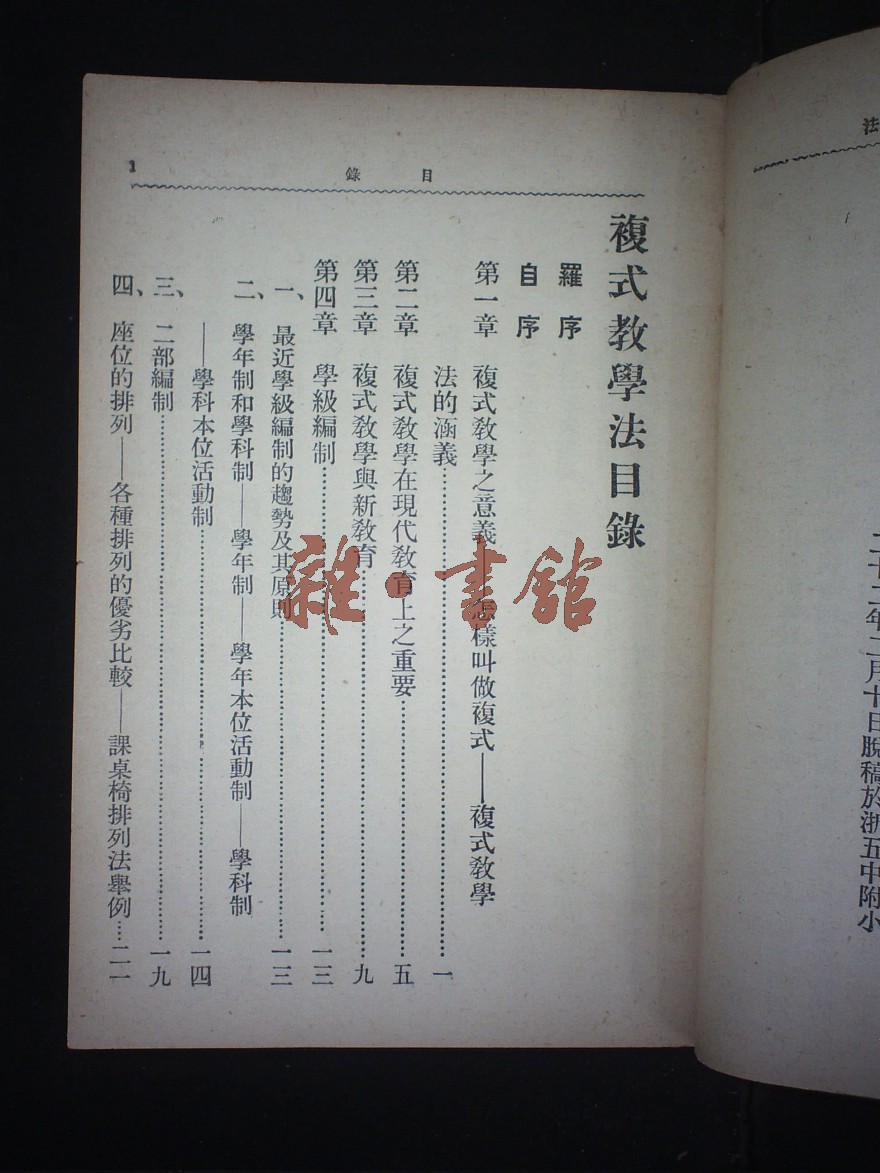 法
二十二年二月十日脫稿於浙五中附小
目錄
1
複式教學法目錄
羅序
自序
第一章 複式教學之意義——怎樣叫做複式——複式教學
法的涵義……一
第二章 複式教學在現代教育上之重要……五
第三章 複式教學與新教育……九
第四章 學級編制……一三
一、最近學級編制的趨勢及其原則……一三
二、學年制和學科制——學年制——學年本位活動制——學科制
——學科本位活動制……一四
三、二部編制……一九
四、座位的排列——各種排列的優劣比較——課桌椅排列法舉例……二一
雜·書館